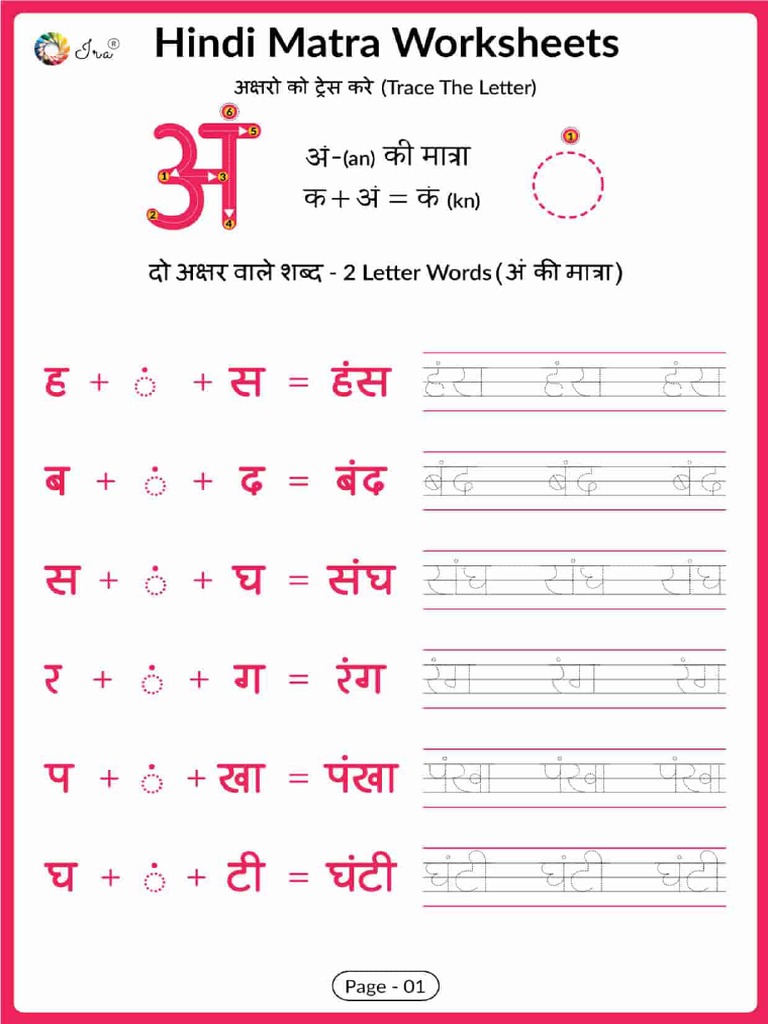 Ira®
Hindi Matra Worksheets
अक्षरो को ट्रेस करे (Trace The Letter)
अं
1 2 3 4 5 6
अं-(an) की मात्रा
क + अं = कं (kn)
1
दो अक्षर वाले शब्द - 2 Letter Words (अं की मात्रा)
ह + ं + स = हंस हंस हंस हंस
ब + ं + द = बंद बंद बंद बंद
स + ं + घ = संघ संघ संघ संघ
र + ं + ग = रंग रंग रंग रंग
प + ं + खा = पंखा पंखा पंखा पंखा
घ + ं + टी = घंटी घंटी घंटी घंटी
Page - 01